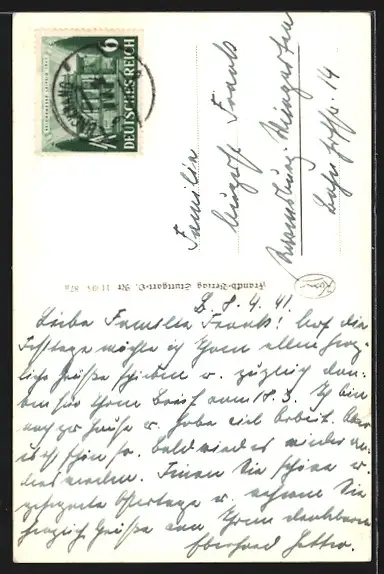 6
DEUTSCHES REICH
Familie
August Frank
Ravensburg-Weingarten
14
Franckh-Verlag Stuttgart-O.
B. 8. 4. 41.
Liebe Familie Frank! Auf die
Festtage möchte ich Ihnen allen herz-
liche Grüße schicken u. zugleich dan-
ken für Ihren Brief vom 18. 3. Ich bin
noch zu Hause u. habe viel Arbeit. Aber
ist schon so. bald wird es wieder an-
ders werden. Ihnen schöne u.
gesegnete Ostertage u. nehmen Sie
herzlich Grüße von Ihrem dankbaren
Eberhard